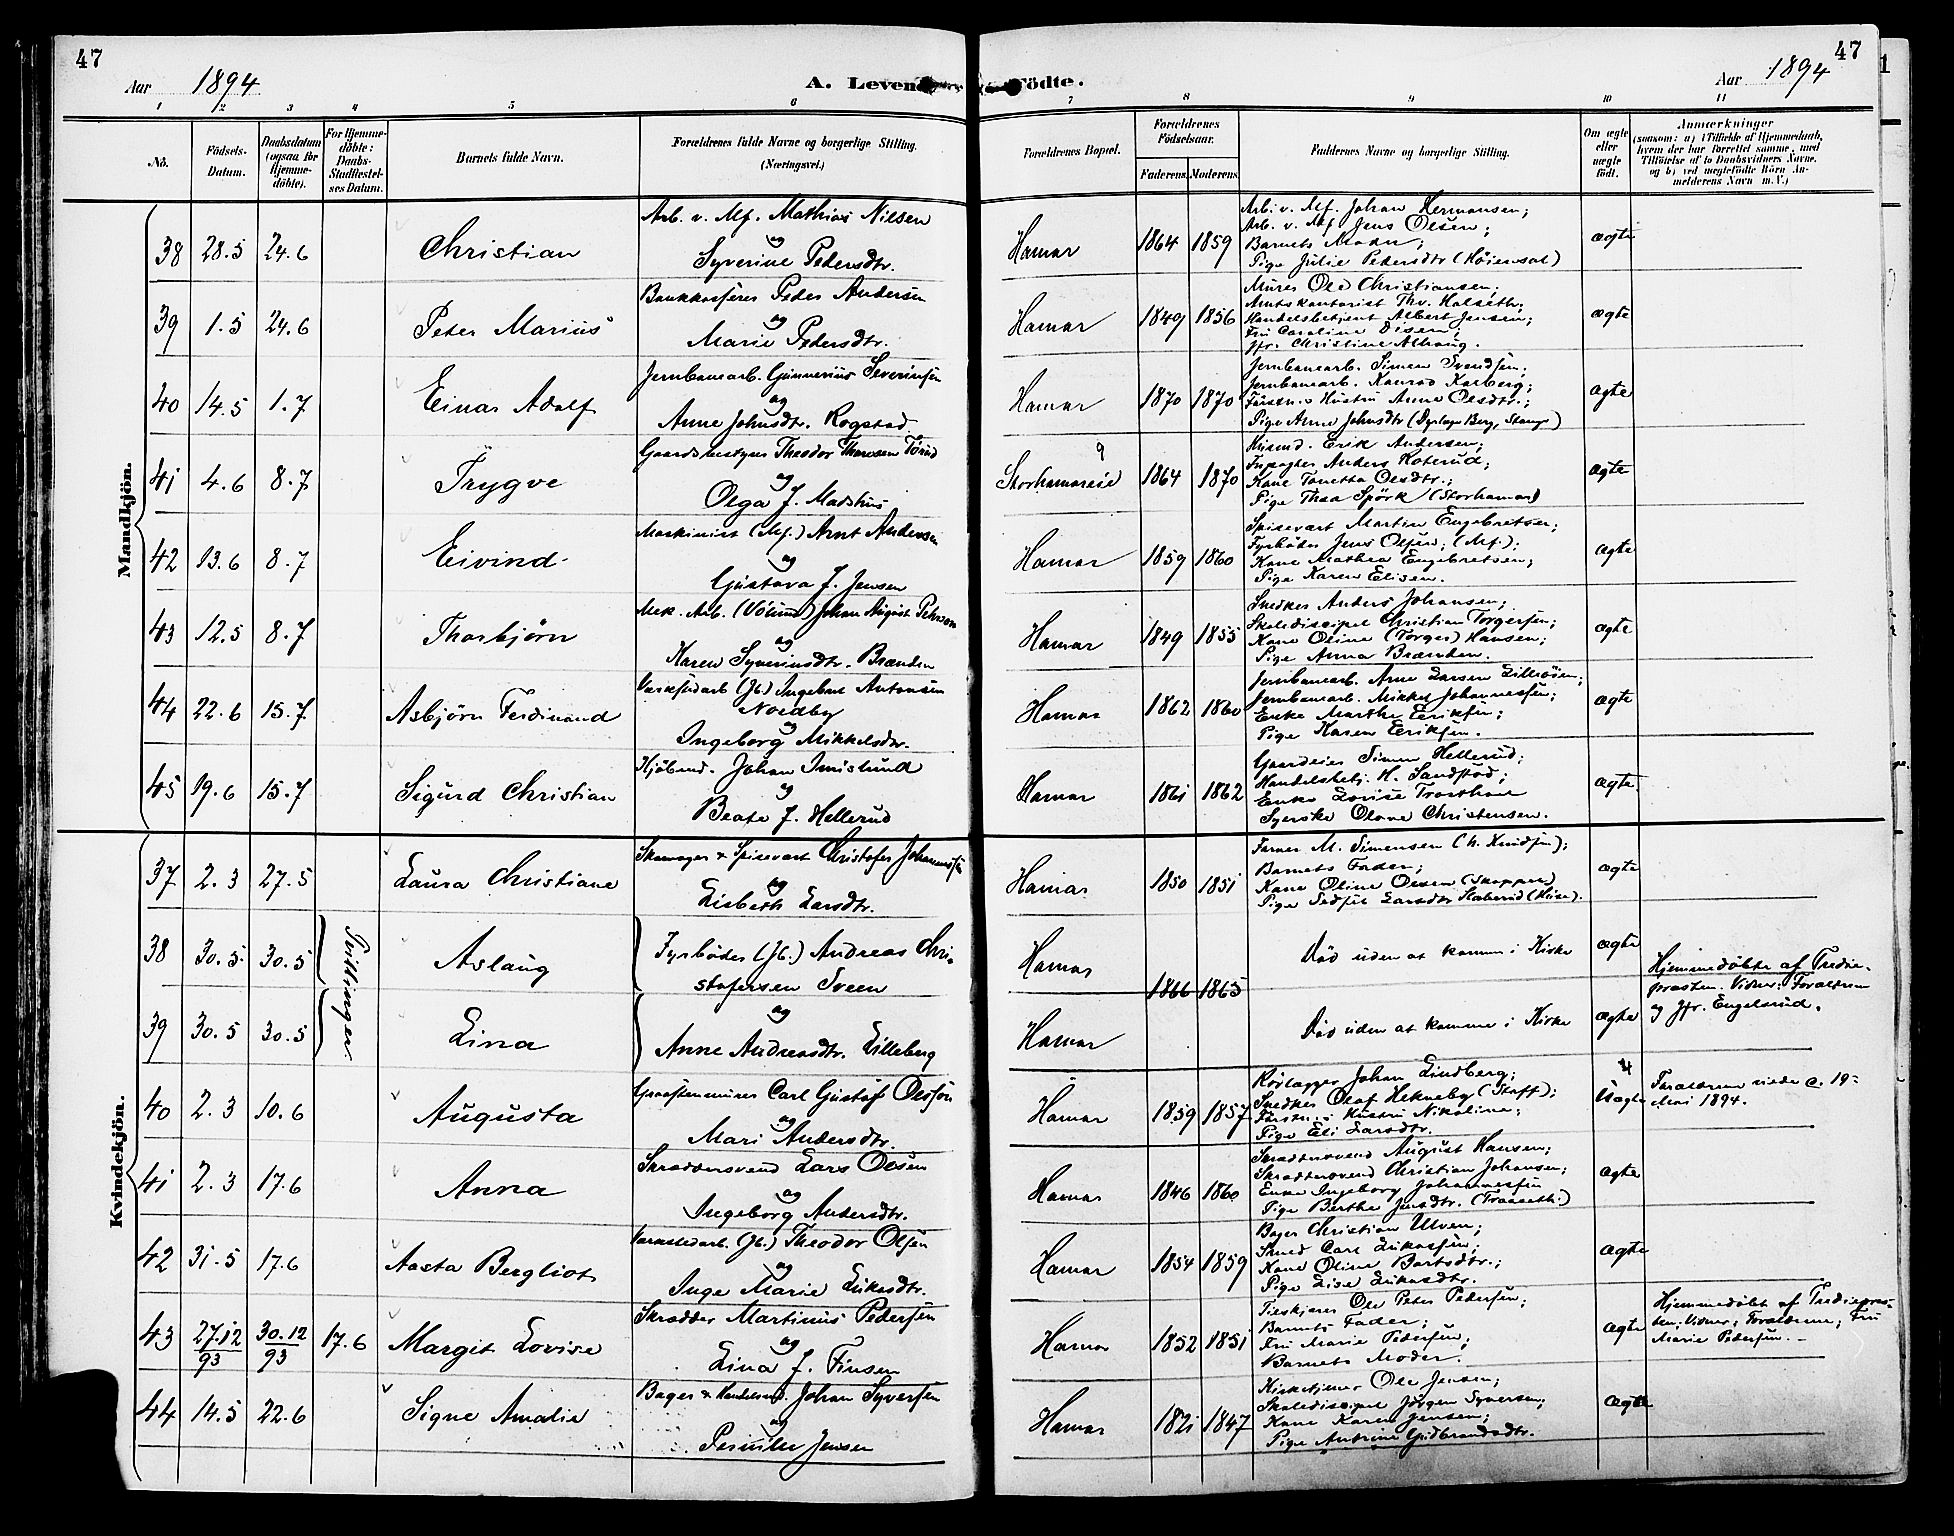 47
Aar 1894
A. Levende
Födte.
Aar 1894
47
1 2 3 4 5 6 7 8 9 10 11
No.
Födsels-
Datum.
Daabsdatum
(ogsaa for
Hjemme-
döbte).
For Hjemme-
döbte:
Daabs-
Stadfæstel-
ses Datum.
Barnets fulde Navn.
Forældrenes fulde Navne og borgerlige Stilling.
(Næringsvei.)
Forældrenes Bopæl.
Forældrenes
Födselsaar.
Faderens.
Moderens.
Faddernes Navne og borgerlige Stilling.
Om ægte
eller
uægte
født.
Anmærkninger
(saasom: a) i Tilfælde af Hjemmedaab,
hvem der har forrettet samme, med
Tilföielse af to Daabsvidners Navne.
og b) ved uægtefödte Börn An-
melderens Navn m.V.)
Mandkjön.
38 28.5 24.6 Christian
Arb. v. Mf. Mathias Nilsen
og
Syverine Pedersdtr.
Hamar 1864 1859
Arb. v. Mf. Johan Hermansen;
Arb. v. Mf Jens Olsen;
Barnets Moder;
Pige Julie Pedersdtr (Höiensal)
ægte
39 1.5 24.6 Peter Marius
Bankkasserer Peder Andersen
og
Marie Pedersdtr.
Hamar 1849 1856
Murer Ole Christiansen;
Amtskontorist Thv. Halseth;
Handelsbetjent Albert Jensen;
Fru Caroline Disen;
Jfr. Christine Alhaug.
ægte
40 14.5 1.7 Einar Adolf
Jernbanearb. Gunnerius Severinsen
og
Anne Johnsdtr. Rogstad
Hamar 1870 1870
Jernbanearb. Simen Svendsen;
Jernbanearb. Konrad Karberg;
Förstn.s Hustru Anne Olsdtr.;
Pige Anne Johnsdtr (Dyrlæge Berg, Stange)
ægte
41 4.6 8.7 Trygve
Gaardsbestyrer Theodor Thoresen
og
Olga J. Madshus
Storhamareie 1864 1870
Husmd. Erik Andersen;
Anders Koterud;
Kone Tonetta Olsdtr.;
Pige Thea Spörk (Storhamar)
ægte
42 13.6 8.7 Eivind
Maskinist (Mf.) Arnt Andersen
og
Gustava J. Jensen
Hamar 1859 1860
Spisevært Martin Engebretsen;
Fyrböder Jens Olsen; (Mf.);
Kone Mathea Engebretsen;
Pige Karen Elisen.
ægte
43 12.5 8.7 Thorbjörn
Mek. Arb. (Völund) Johan August Peterson
og
Karen Syverinsdtr. Brænden
Hamar 1849 1855
Snedker Anders Johansen;
Skolediscipel Christian Torgersen;
Kone Oline (Torger) Hansen;
Pige Anna Brænden.
ægte
44 22.6 15.7 Asbjörn Ferdinand
Værkstedarb (Jb.) Ingebret Antonsen
Nordby
og
Ingeborg Mikkelsdtr.
Hamar 1862 1860
Jernbanearb. Arne Larsen Lilleösen;
Jernbanearb. Mikkel Johannessen;
Enke Marthe Eriksen;
Pige Karen Eriksen.
ægte
45 19.6 15.7 Sigurd Christian
Kjöbmd. Johan Imislund
og
Beate J. Hellerud
Hamar 1861 1862
Gaardeier Simen Hellerud;
Handelsbetj. H. Sandstad;
Enke Lovise Trosthoe
Syerske Olave Christensen.
ægte
Kvindekjön.
37 2.3 27.5 Laura Christiane
Skomager & Spisevært Christofer Johannessen
og
Lisbeth Larsdtr.
Hamar 1850 1851
Farver M. Simensen (h. Knudsen);
Barnets Fader;
Kone Oline Olsen (Skappen)
Pige Larsdtr
ægte
Tvillinger
38 30.5 30.5 Aslaug
Fyrböder (Jb.) Andreas Chri-
stofersen Sveen
Hamar 1866 1865
Död uden at komme i Kirke
ægte
Hjemmedöbte af Tredie-
presten. Vidner: Forældrene
og Jfr. Engelsrud.
39 30.5 30.5 Lina
og
Anne Andreasdtr. Lilleberg
Hamar
Död uden at komme i Kirke
ægte
40 2.3 10.6 Augusta
Graastensmurer Carl Gustaf Olsson
og
Mari Andersdtr.
Hamar 1859 1857
Rörlægger Johan Lindberg;
Snedker Olaf Hekneby (Staff);
Förstn.s Hustru Nikoline;
Pige Eli Larsdtr.
Uægte
Forældrene viede c. 19-
Mai 1894.
41 2.3 17.6 Anna
Skræddersvend Lars Olsen
og
Ingeborg Andersdtr.
Hamar 1846 1860
Skræddersvend August Hansen;
Skræddersvend Christian Johansen;
Enke Ingeborg Johannessen
Pige Berthe Jensdtr. (Traaseth)
ægte
42 31.5 17.6 Aasta Bergliot
Værkstedarb. (Jb.) Theodor Olsen
og
Inge Marie Lukasdtr.
Hamar 1854 1859
Bager Christian Ulven;
Smed Carl Lukassen;
Kone Oline Bortsdtr.;
Pige Lise Lukasdtr.
ægte
43 27.12/93 30.12/93 17.6 Margit Lovise
Skrædder Martinius Pedersen
og
Lina J. Finsen
Hamar 1852 1851
Ole Peter Pedersen;
Barnets Fader;
Fru Marie Pedersen;
Barnets Moder.
ægte
Hjemmedöbt af Tredjepres-
ten. Vidner: Forældrene, Fru
Marie Pedersen. -
44 14.5 22.6 Signe Amalie
Bager & Handelsmd. Johan Syversen
og
Jensen
Hamar 1821 1847
Kirketjener Ole Jensen;
Skolediscipel Jörgen Syversen;
Kone Karen Jensen;
Pige Antrine Gudbrandsdtr.
ægte